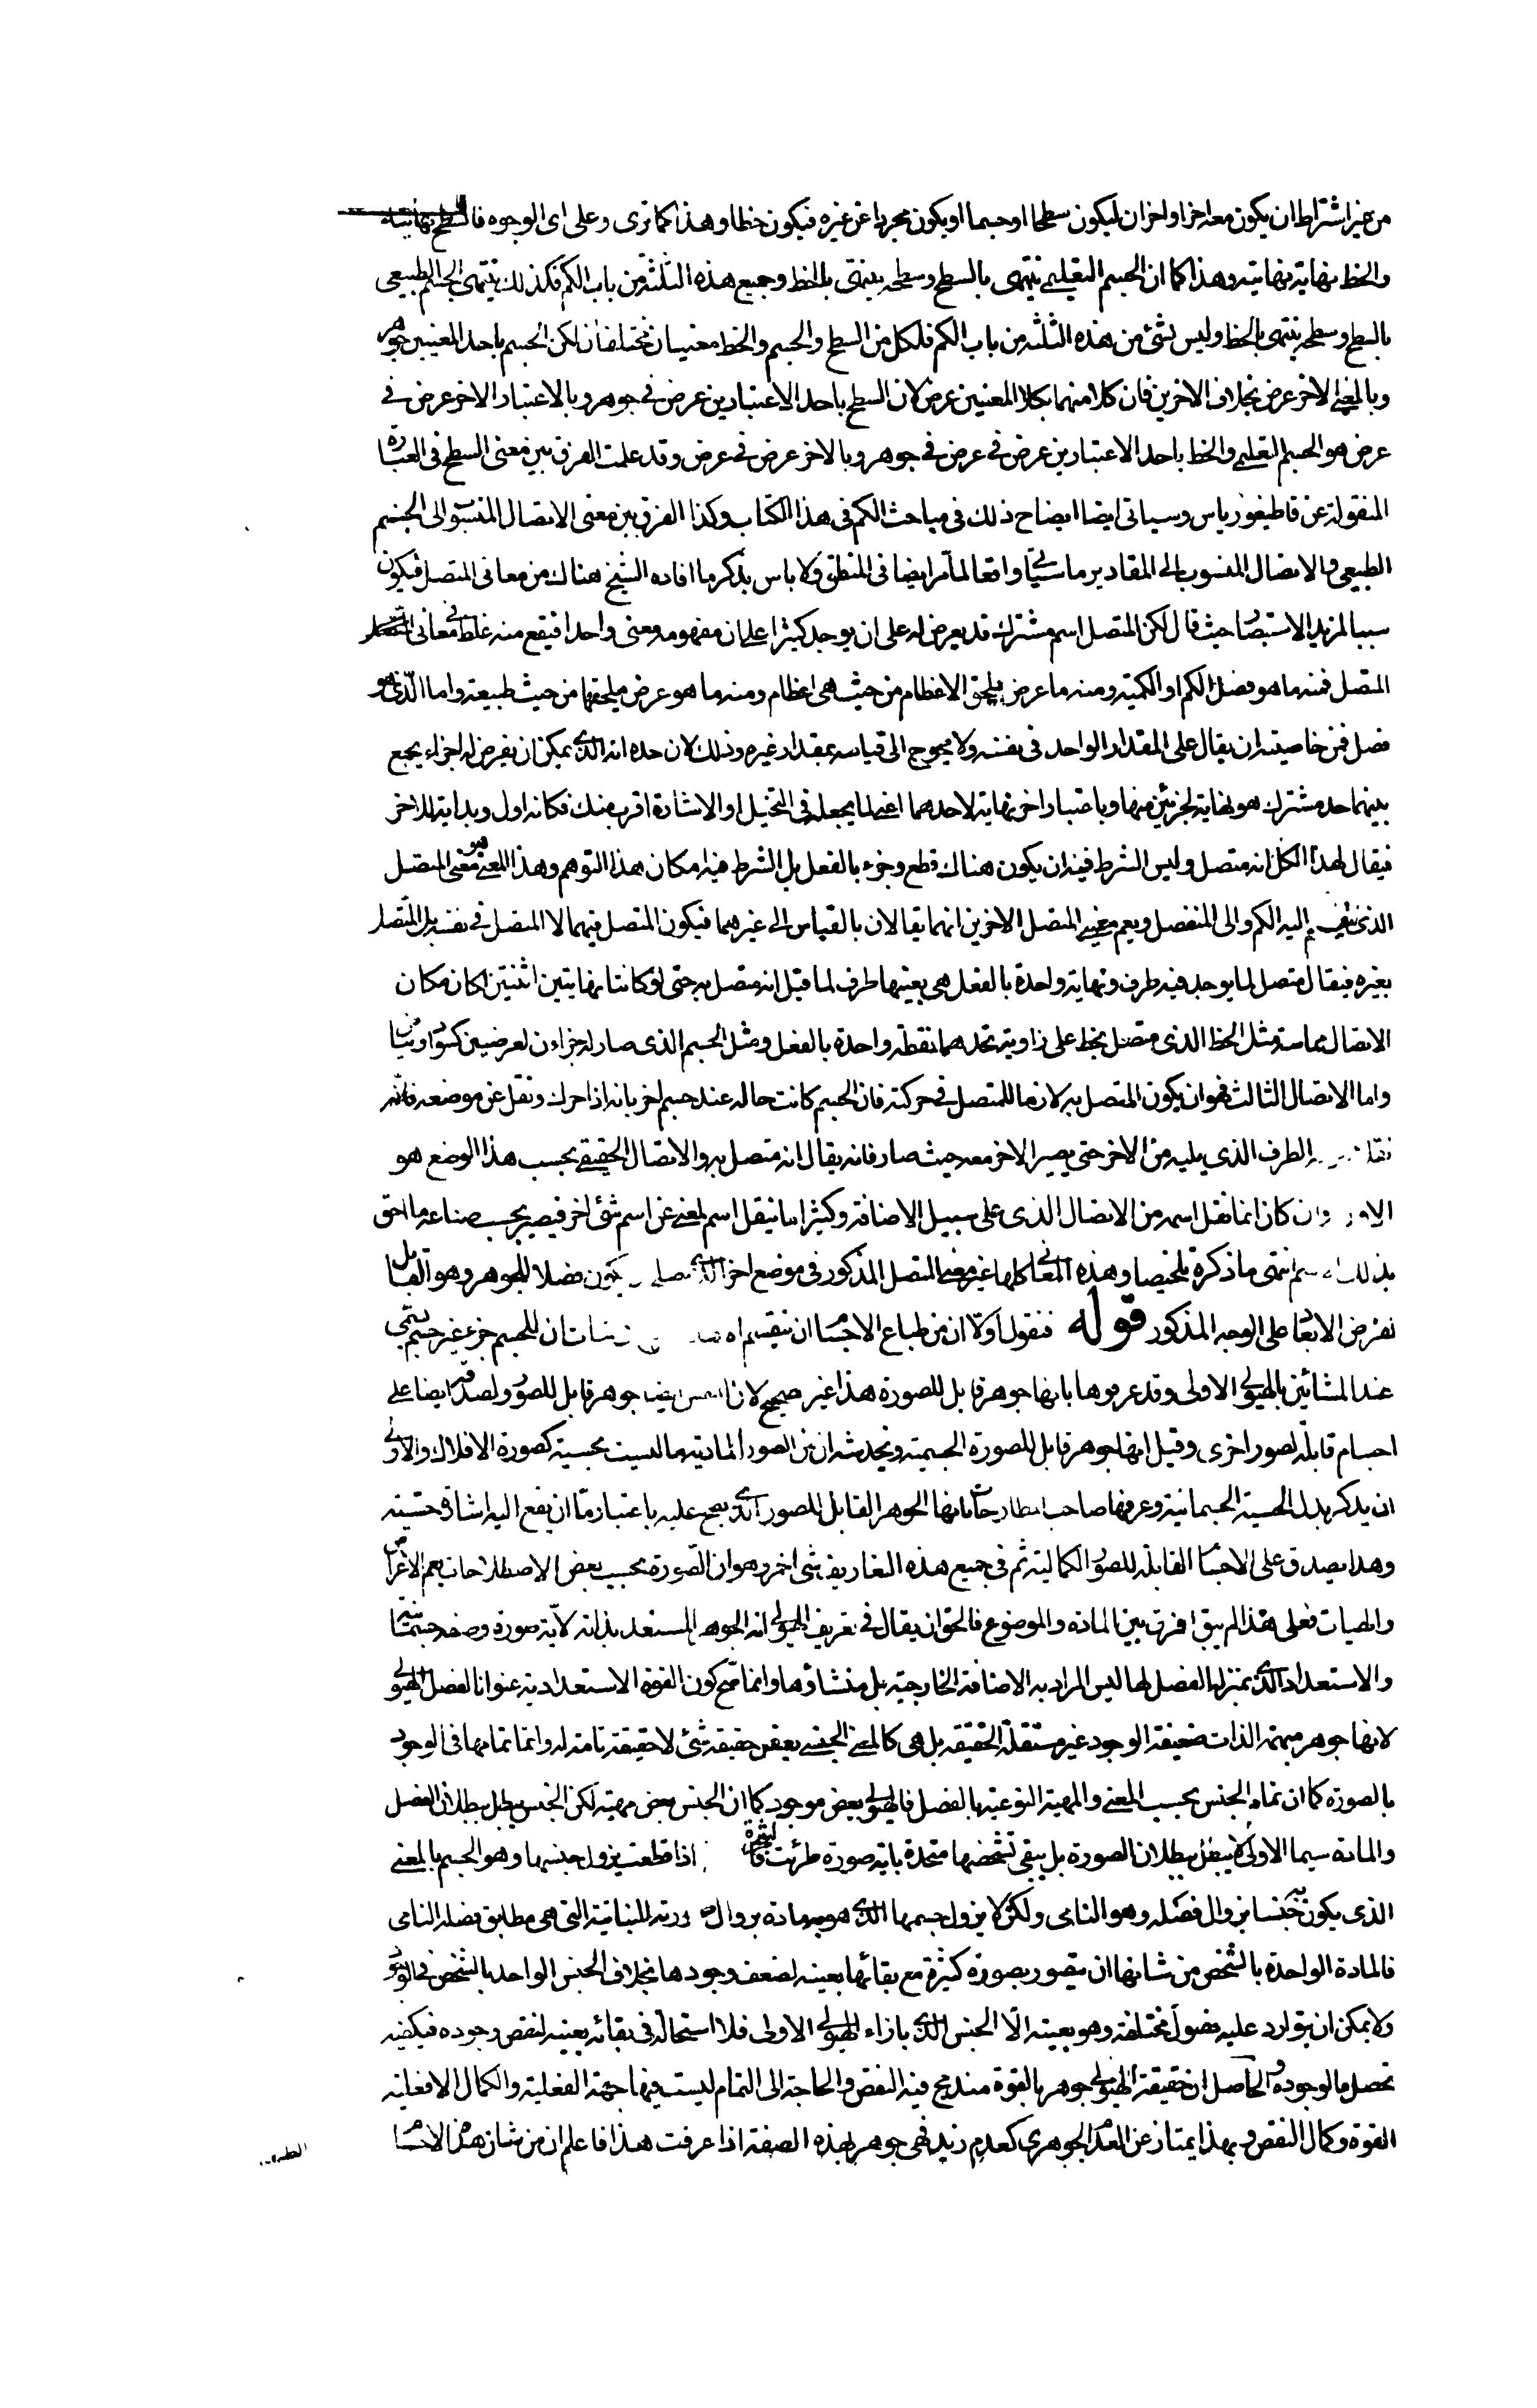 من غير اشتراط ان يكون معه اخر او اخران ليكون سطحا او جسما او يكون مجردا عن غيره فيكون خطا وهذا كما ترى وعلى اى الوجوه فالسطح نهايته
والخط نهاية نهايته وهذا كما ان الجسم التعليمى ينتهى بالسطح وسطحه ينتهى بالخط وجميع هذه الثلثة من باب الكم فكذلك ينتهى الجسم الطبيعى
بالسطح وسطحه ينتهى بالخط وليس شئ من هذه الثلثه من باب الكم فلكل من السطح والجسم والخط معنيان مختلفان لكن الجسم باحد المعنيين جوهر
وبالمعنى الاخر عرض بخلاف الاخرين فان كلا منهما بكلا المعنيين عرض لان السطح باحد الاعتبارين عرض فى جوهر وبالاعتبار الاخر عرض فى
عرض هو الجسم التعليمى والخط باحد الاعتبارين عرض فى عرض فى جوهر وبالاخر عرض فى عرض وقد علمت الفرق بين معنى السطح فى العبارة
المنقولة عن قاطيغورياس وسياتى ايضا ايضاح ذلك فى مباحث الكم فى هذا الكتاب وكذا الفرق بين معنى الاتصال المنسوب الى الجسم
الطبيعى والاتصال المنسوب الى المقادير ما سياتى وافقا لما مر ايضا فى المنطق ولا باس بذكر ما افاده الشيخ هناك من معانى المتصل فيكون
سببا لمزيد الاستبصار حيث قال لكن المتصل اسم مشترك قد يعرض له على ان يوجد كثيرا على ان مفهومه معنى واحدا فيقع منه غلط فى معانى
المتصل فمنه ما هو فصل الكم او الكمية ومنه ما عرض يلحق الاعظام من حيث هى اعظام ومنه ما هو عرض يلحقها من حيث طبيعة واما الذى هو
فصل فمن خاصيته ان يقال على المقدار الواحد فى نفسه ولا يحوج الى قياسه بمقدار غيره وذلك لان حده انه الذى يمكن ان يفرض له اجزاء يجمع
بينهما حد مشترك هو نهاية لجزئين منها وباعتبار اخر نهاية لاحدهما ايهما يجعله فى التخيل او الاشارة اقرب منك فكانه اول وبداية للاخر
فيقال لهذا الكل انه متصل وليس الشرط فيه ان يكون هناك قطع وجزء بالفعل بل الشرط فيه امكان هذا التوهم وهذا المعنى هو معنى المتصل
الذى ينقسم اليه الكم والى المنفصل ويعم معنيى المتصل الاخرين انهما يقالان بالقياس الى غيرهما فيكون المتصل فيهما لا المتصل فى نفسه بل المتصل
بغيره فيقال متصل لما يوجد فيه طرف ونهاية واحدة بالفعل هى بعينها طرف لما قيل انه متصل به حتى لو كانتا نهايتين اثنتين لكان مكان
الاتصال مماسة مثل الخط الذى متصل بخط على زاوية تحدهما نقطة واحدة بالفعل ومثل الجسم الذى صار له جزءان لعرضين كسواد وبياض
واما الاتصال الثالث فهو ان يكون المتصل به لازما للمتصل فى حركته فان الجسم كانت حاله عند جسم اخر بانه اذا حرك ونقل عن موضعه فانه
الطرف الذى يليه من الاخر حتى يصير الاخر معه حيث صار فانه يقال انه متصل به والاتصال الحقيقى بحسب هذا الوضع هو
وان كان انما نقل اسمه من الاتصال الذى على سبيل الاضافة وكثيرا ما ينقل اسم لمعنى عن اسم شئ اخر فيصير بحسب صناعة ما احق
بذلك انتهى ما ذكره تلخيصا وهذه المعانى كلها غير معنى المتصل المذكور فى موضع اخر الذى يكون فصلا للجوهر وهو القابل
لفرض الابعاد على الوجه المذكور قوله فنقول اولا ان من طباع الاجسام ان ينقسم اه ان للجسم جزء غير جسم يسمى
عند المشائين بالهيولى الاولى وقد عرفوها بانها جوهر قابل للصورة هذا غير صحيح لان جوهر قابل للصور ولصدقه ايضا على
اجسام قابلة لصور اخرى وقيل انها جوهر قابل للصورة الجسمية ويخدشه ان من الصور المادية ما ليست بحسية كصورة الافلاك والاولى
ان يذكر بدل الحسية الجسمانية وعرفها صاحب المطارحات بانها الجوهر القابل للصور الذى يصح عليه باعتبار ما ان يقع اليه اشارة حسية
وهذا يصدق على الاجسام القابلة للصور الكمالية ثم فى جميع هذه التعاريف شئ اخر وهو ان الصورة بحسب بعض الاصطلاحات يعم الاعراض
والهيات فعلى هذا لم يبق فرق بين المادة والموضوع فالحق ان يقال فى تعريف الهيولى انه الجوهر المستعد بذاته لاية صورة وصفة جسمانية
والاستعداد الذى بمنزلة الفصل لها ليس المراد به الاضافة الخارجية بل منشاؤها وانما صح كون القوة الاستعدادية عنوانا لفصل الهيولى
لانها جوهر مبهمة الذات ضعيفة الوجود غير مستقلة الحقيقة بل هى كالمعنى الجنسى بعض حقيقة شئ لا حقيقة تامة له وانما تمامها فى الوجود
بالصورة كما ان تمام الجنس بحسب المعنى والمهية النوعية بالفصل فالهيولى بعض موجود كما ان الجنس بعض مهية لكن الجنس يبطل ببطلان الفصل
والمادة سيما الاولى لا يبطل ببطلان الصورة بل يبقى تشخصها متحدة باية صورة طرئت فالشجرة اذا قطعت يزول جنسها وهو الجسم بالمعنى
الذى يكون به جنسا بزوال فصله وهو النامى ولكن لا يزول جسمها الذى هو به مادة بزوال صورته النباتية التى هى مطابق فصله النامى
فالمادة الواحدة بالشخص من شانها ان يتصور بصورة كثيرة مع بقائها بعينه لضعف وجودها بخلاف الجنس الواحد بالشخص فى الوجود
ولا يمكن ان يتوارد عليه فصول مختلفة وهو بعينه الا الجنس الذى بازاء الهيولى الاولى فلا استحالة فى بقائه بعينه لنقص وجوده فيكفيه
تحصل ما لوجوده والحاصل ان حقيقة الهيولى جوهر بالقوة مندمج فيه النقص والحاجة الى التمام ليست فيها جهة الفعلية والكمال الا فعلية
القوة وكمال النقص وبهذا يمتاز عن العدم الجوهرى كعدم زيد فهى جوهر بهذه الصفة اذا عرفت هذا فاعلم ان من شان هذه الاجسام